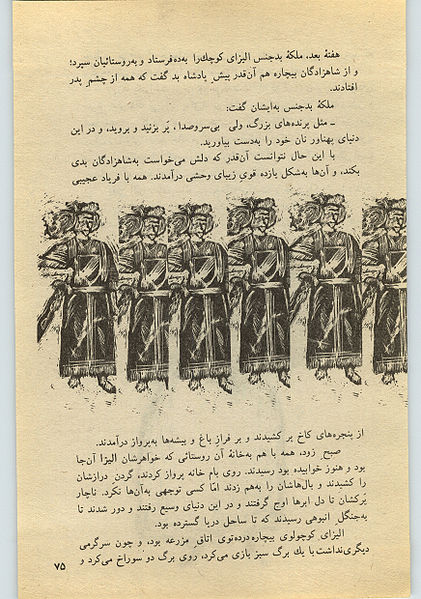 هفتهٔ بعد، ملکهٔ بدجنس الیزای کوچك را به‌ده‌فرستاد و به‌روستائیان سپرد؛
و از شاهزادگان بیچاره هم آن‌قدر پیش پادشاه بد گفت که همه از چشم پدر
افتادند.
ملکهٔ بدجنس به‌ایشان گفت:
ـ مثل پرنده‌های بزرگ، ولی بی‌سروصدا، پَر بزنید و بروید، و در این
دنیای پهناور نان خود را به‌دست بیاورید.
با این حال نتوانست آن‌قدر که دلش می‌خواست به‌شاهزادگان بدی
بکند، و آن‌ها به‌شکل یازده قوی زیبای وحشی درآمدند. همه با فریاد عجیبی
از پنجره‌های کاخ پر کشیدند و بر فراز باغ و بیشه‌ها به‌پرواز درآمدند.
صبح زود، همه با هم به‌خانهٔ آن روستائی که خواهرشان الیزا آن‌جا
بود و هنوز خوابیده بود رسیدند. روی بام خانه پرواز کردند، گردن درازشان
را کشیدند و بال‌هاشان را به‌هم زدند امّا کسی توجهی به‌آن‌ها نکرد. ناچار
پَرکشان تا دل ابرها اوج گرفتند و در این دنیای وسیع رفتند و دور شدند تا
به‌جنگل انبوهی رسیدند که تا ساحل دریا گسترده بود.
الیزای کوچولوی بیچاره درده‌توی اتاق مزرعه بود، و چون سرگرمی
دیگری‌نداشت‌با یك برگ سبز بازی می‌کرد، روی برگ دو سوراخ می‌کرد و
۷۵